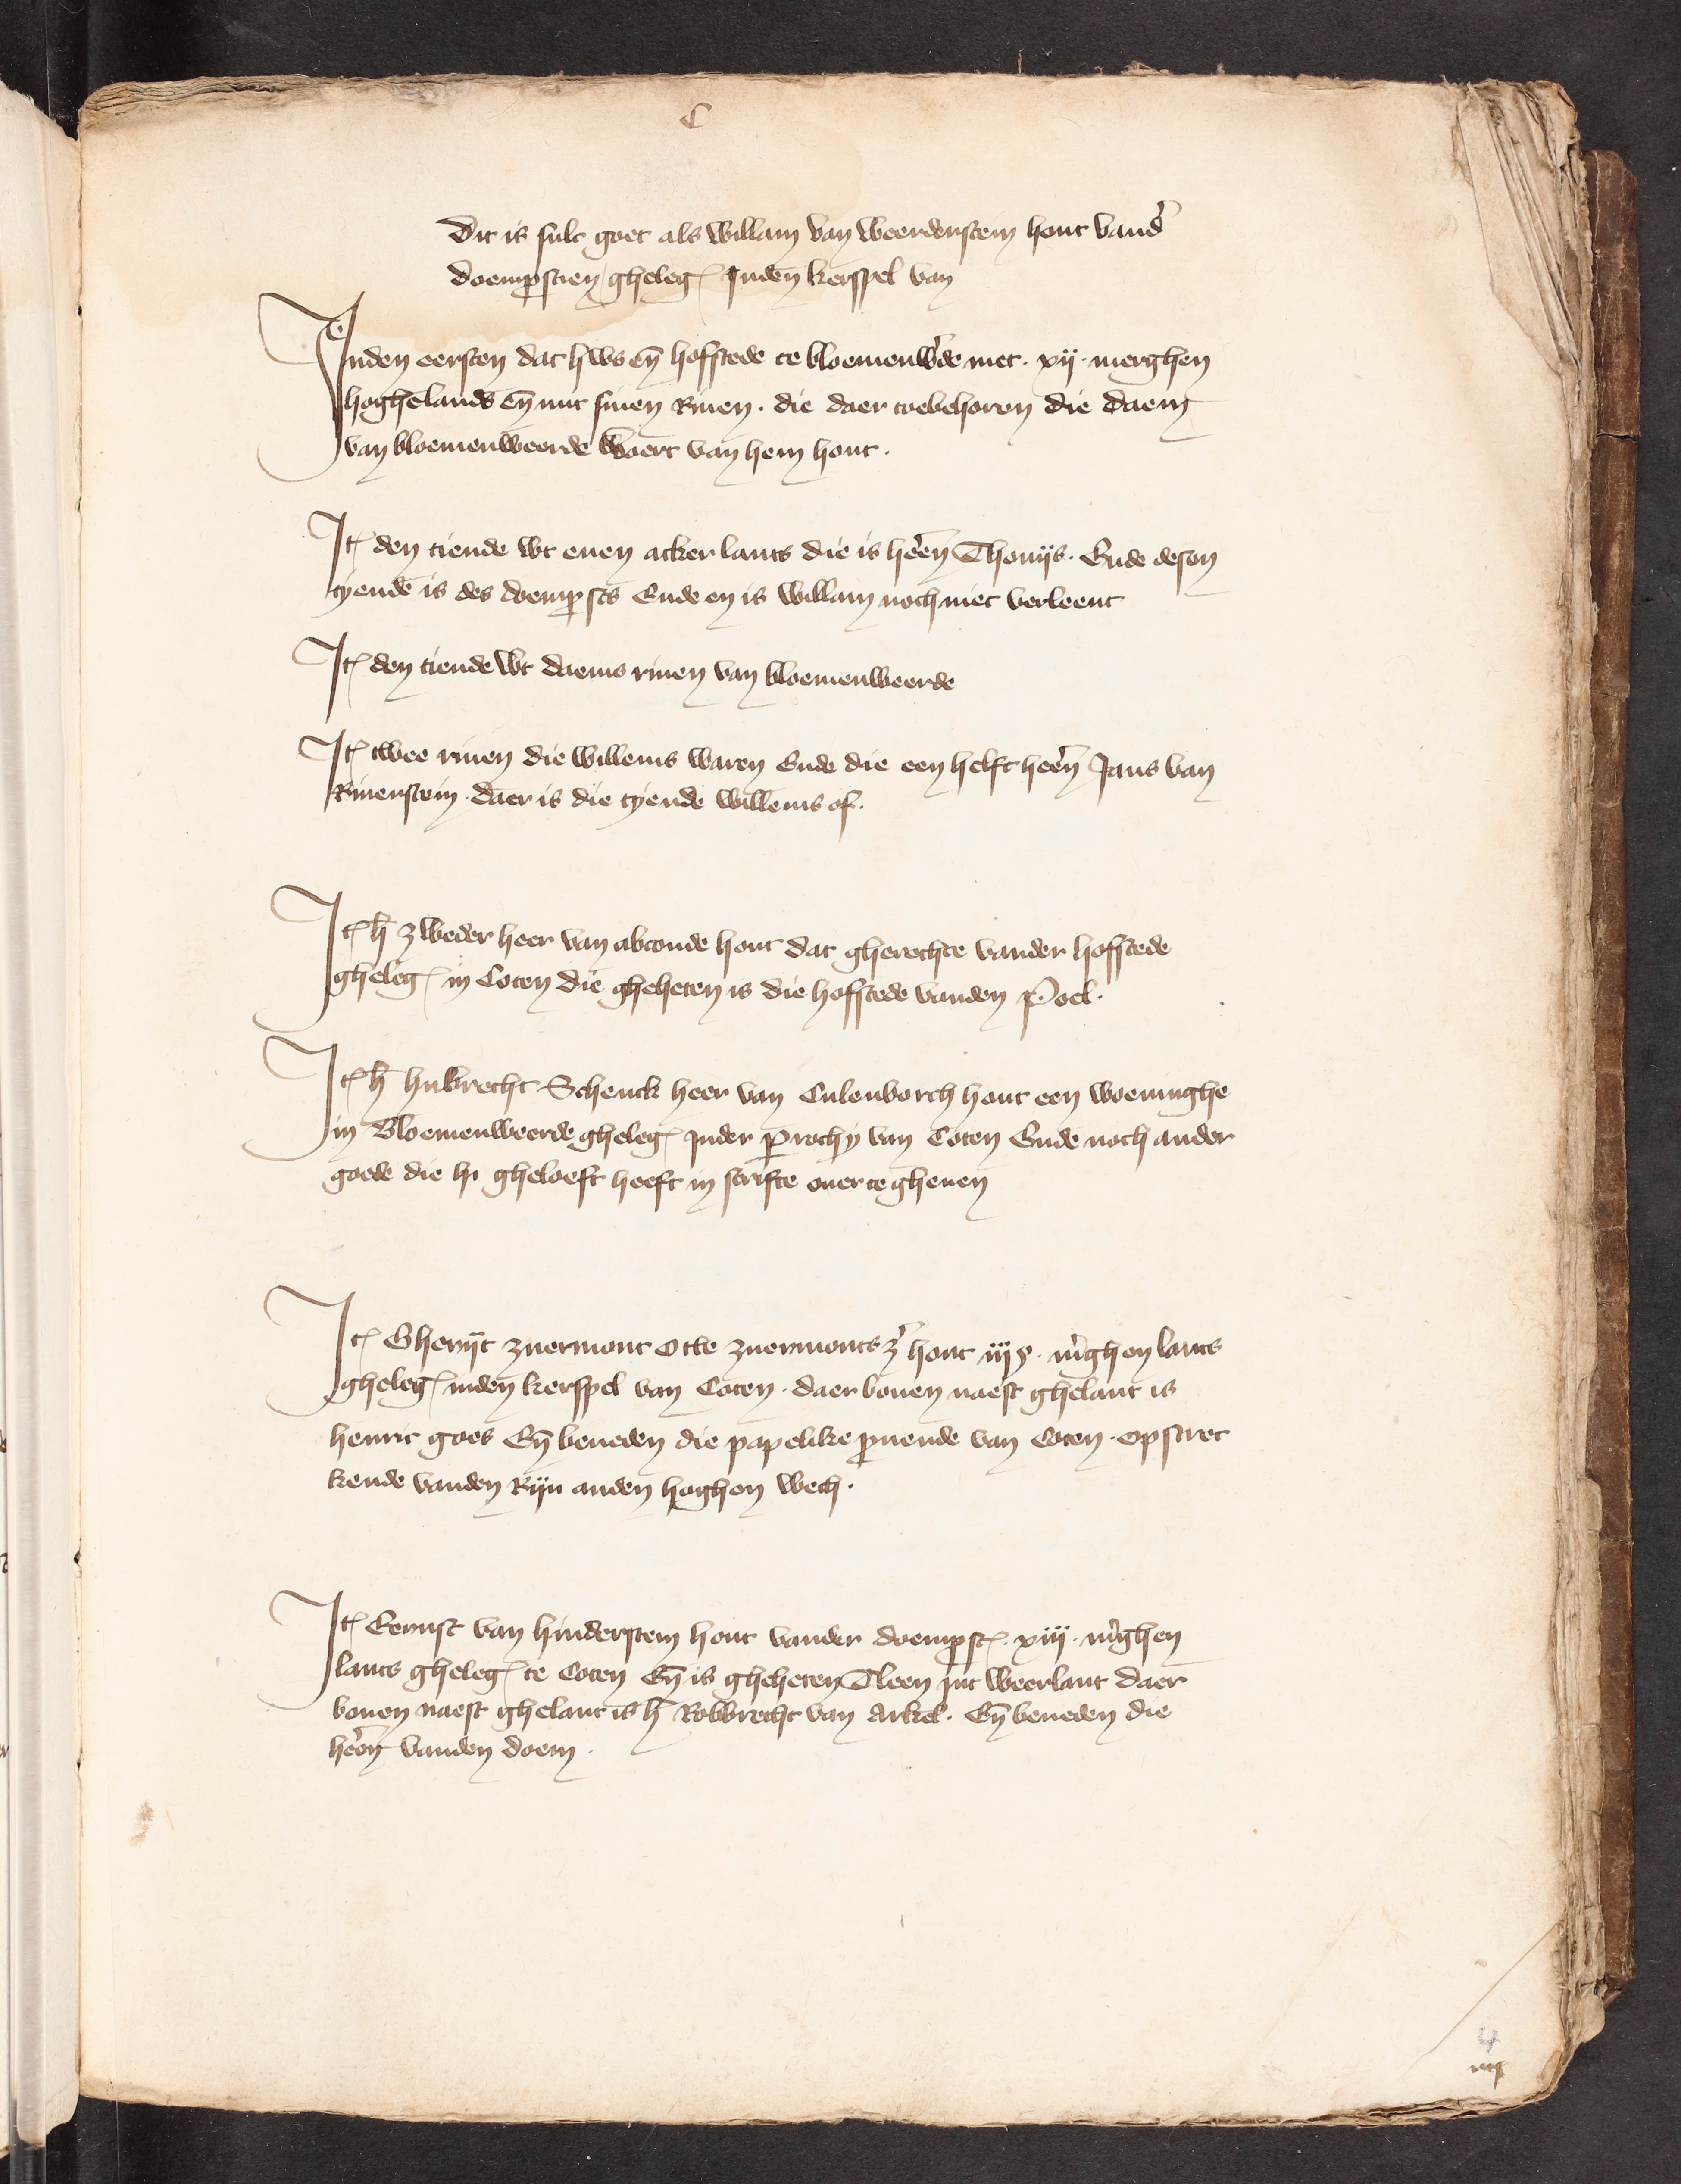 C
Dit is sulc goet als Willam van Weerdenstein hout vand'
doemp̱stien gheleḡ Jnden kerspel van
Jnden eersten dat hws en̄ hofstede te bloemenw'de met · xij · merghen
hoghelands en̄ mit sinen Rinen · die daer toebehoren die daem
van bloemenweerde Woert van hem hout ·
Jt̄ den tiende wt enen acker lants die is heren̄ Thonijs · Ende desen
tyende is des doemp̱sts Ende en is Willam noch niet verleent
Jt̄ den tiende wt daems rinen van bloemenweerde
Jt̄ twee rinen die willems waren Ende die een helft heren̄ Jans van
Rinenstein · daer is die tyende willems of ·
Jt̄ h̄ zweder heer van abcoude hout dat gherechte vander hofstede
gheleḡ in Coten die gheheten is die hofstede vanden Poel ·
Jt̄ h̄ hubrecht Schenck heer van Culenborch hout een woeninghe
in Bloemenweerde gheleḡ jnder p̱rochy van Coten Ende noch ander
goede die hi gheloeft heeft in scrifte ouer te gheuen
Jt̄ Gherijt zuermont Otte zuermonts z' hout iijș · m'ghen lants
gheleḡ inden kerspel van Coten · daer bouen naest ghelant is
henric goes En̄ beneden die papelike p̱uende van Coten · opstrec
kende vanden Rijn anden hoghen wech ·
Jt̄ Eernst van hinderstein hout vander doemp̱st̄ · xiij · m'ghen
lants gheleḡ te Coten En̄ is gheheten Tleen int weerlant daer
bouen naest ghelant is h̄ Robbrecht van Arkel · En̄ beneden die
heren̄ vanden doem ·
4
iiij